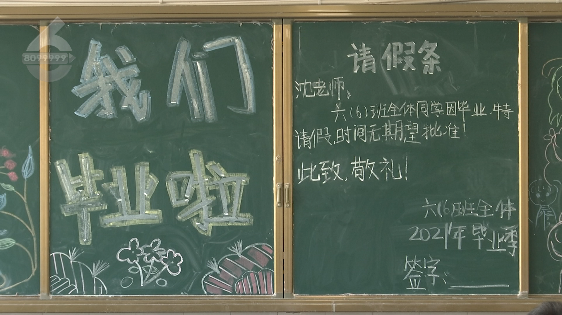 我们
毕业啦
请假条
沈老师,
六(6)班全体同学因毕业,特
请假,时间无期望批准!
此致,敬礼!
六(6)班全体
2021年毕业季
签字: